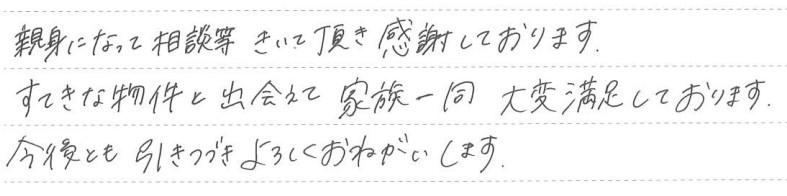 親身になって相談等 きいて頂き感謝しております.
すてきな物件と出会えて 家族一同 大変満足しております.
今後とも引きつづきよろしくおねがいします.